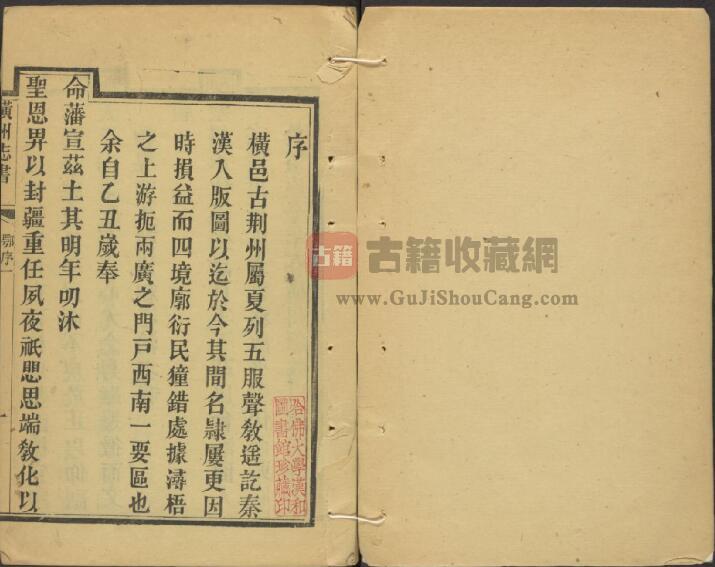 序
橫邑古荆州屬夏列五服聲敎遥訖秦
漢入版圖以迄於今其間名隷屢更因
時損益而四境廓衍民獞錯處據潯梧
之上游扼兩廣之門戶西南一要區也
余自乙丑歲奉
命藩宣兹土其明年叨沐
聖恩畀以封疆重任夙夜祇愳思端敎化以
橫州志書
鄂序
一
哈佛大學漢和
圖書館珍藏印
古籍
古籍收藏網
www.GuJiShouCang.com